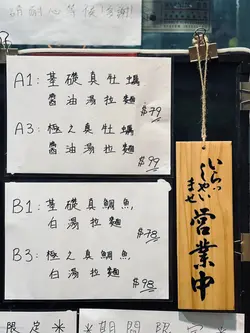 請耐心等候!感謝!
A1: 基礎真牡蠣
醬油湯拉麵
$79
A3: 極之真牡蠣
醬油湯拉麵
$99
B1: 基礎真鯛魚
白湯拉麵
$78
B3: 極之真鯛魚
白湯拉麵
$98
いらっ
しゃい
ませ
営業中